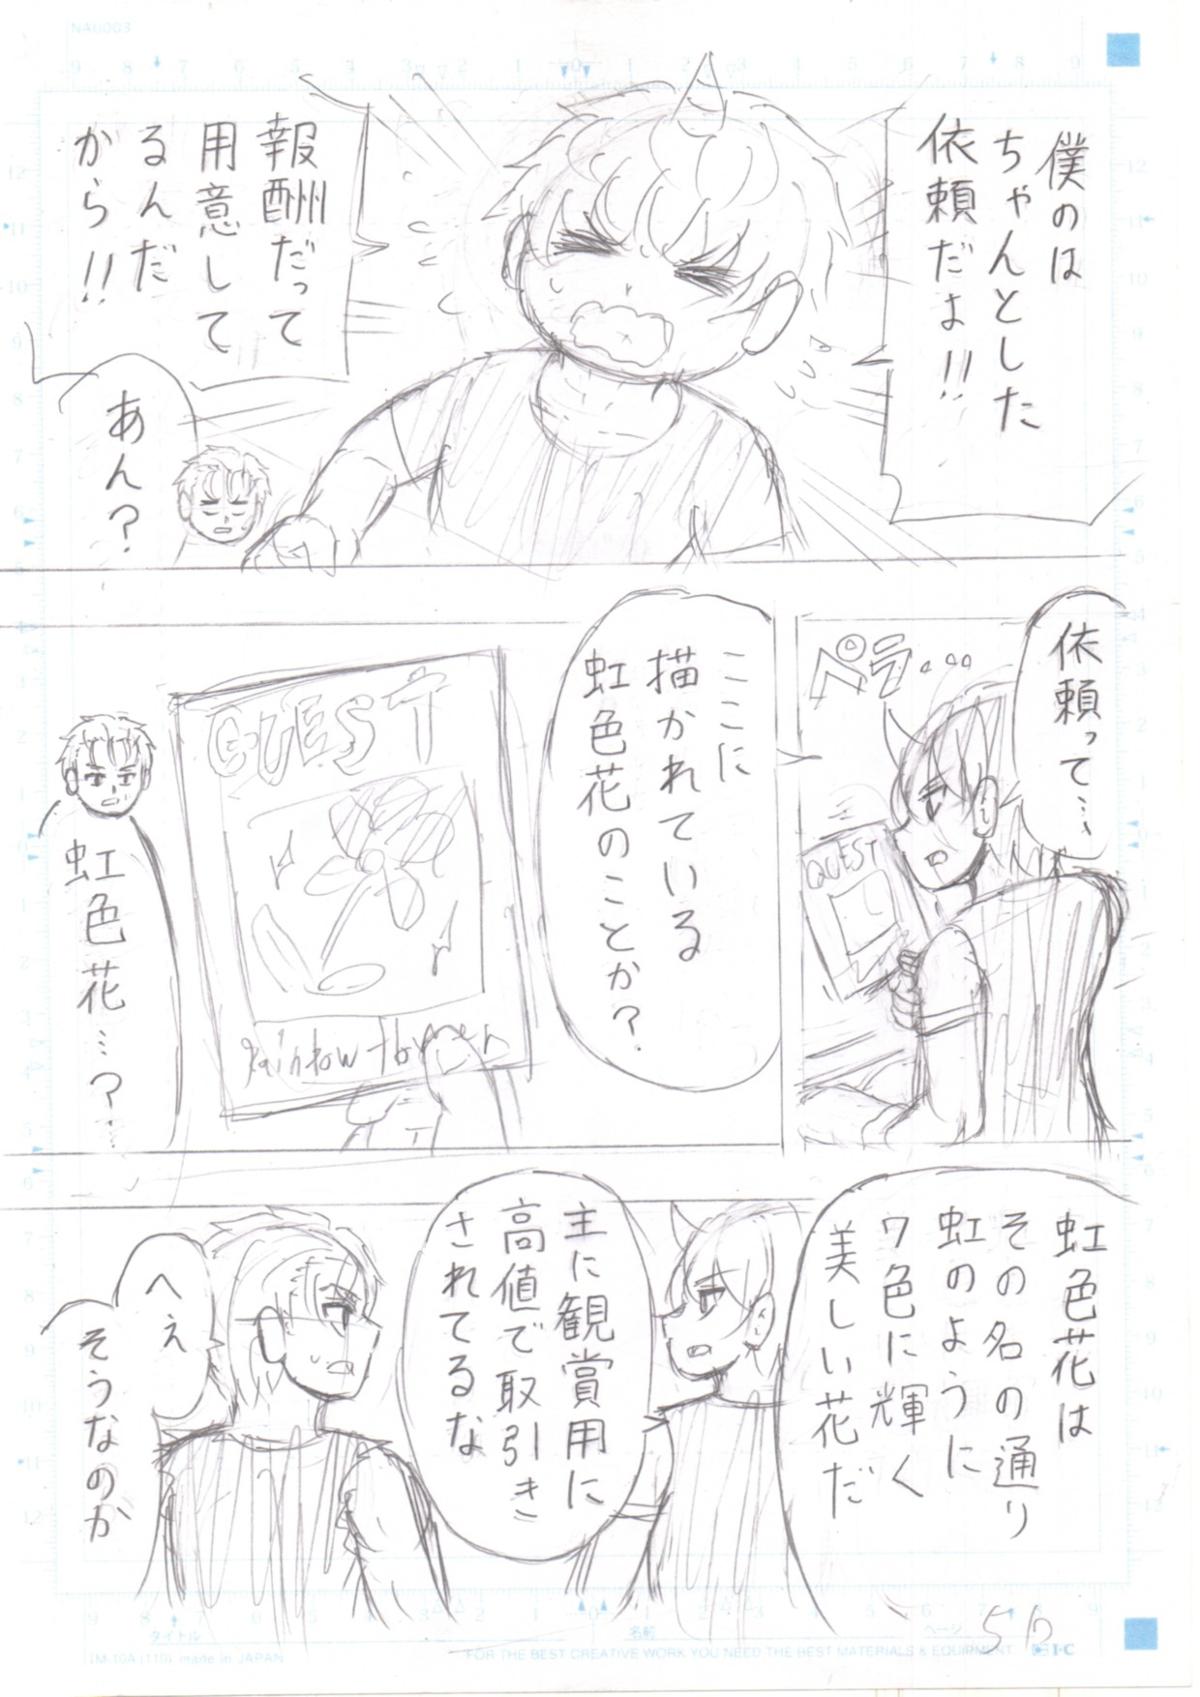 NAU003
僕のは
ちゃんとした
依頼だよ!!
報酬だって
用意して
るんだ
から!!
あん?
依頼って…
ペラ…
QUEST
ここに
描かれている
虹色花のことか?
QUEST
Rainbow flower
虹色花…?
虹色花は
その名の通り
虹のように
7色に輝く
美しい花だ
主に観賞用に
高値で取引き
されてるな
へえ
そうなのか
タイトル
名前
ページ
IM-10A (110) made in JAPAN
FOR THE BEST CREATIVE WORK YOU NEED THE BEST MATERIALS & EQUIPMENT
I·C